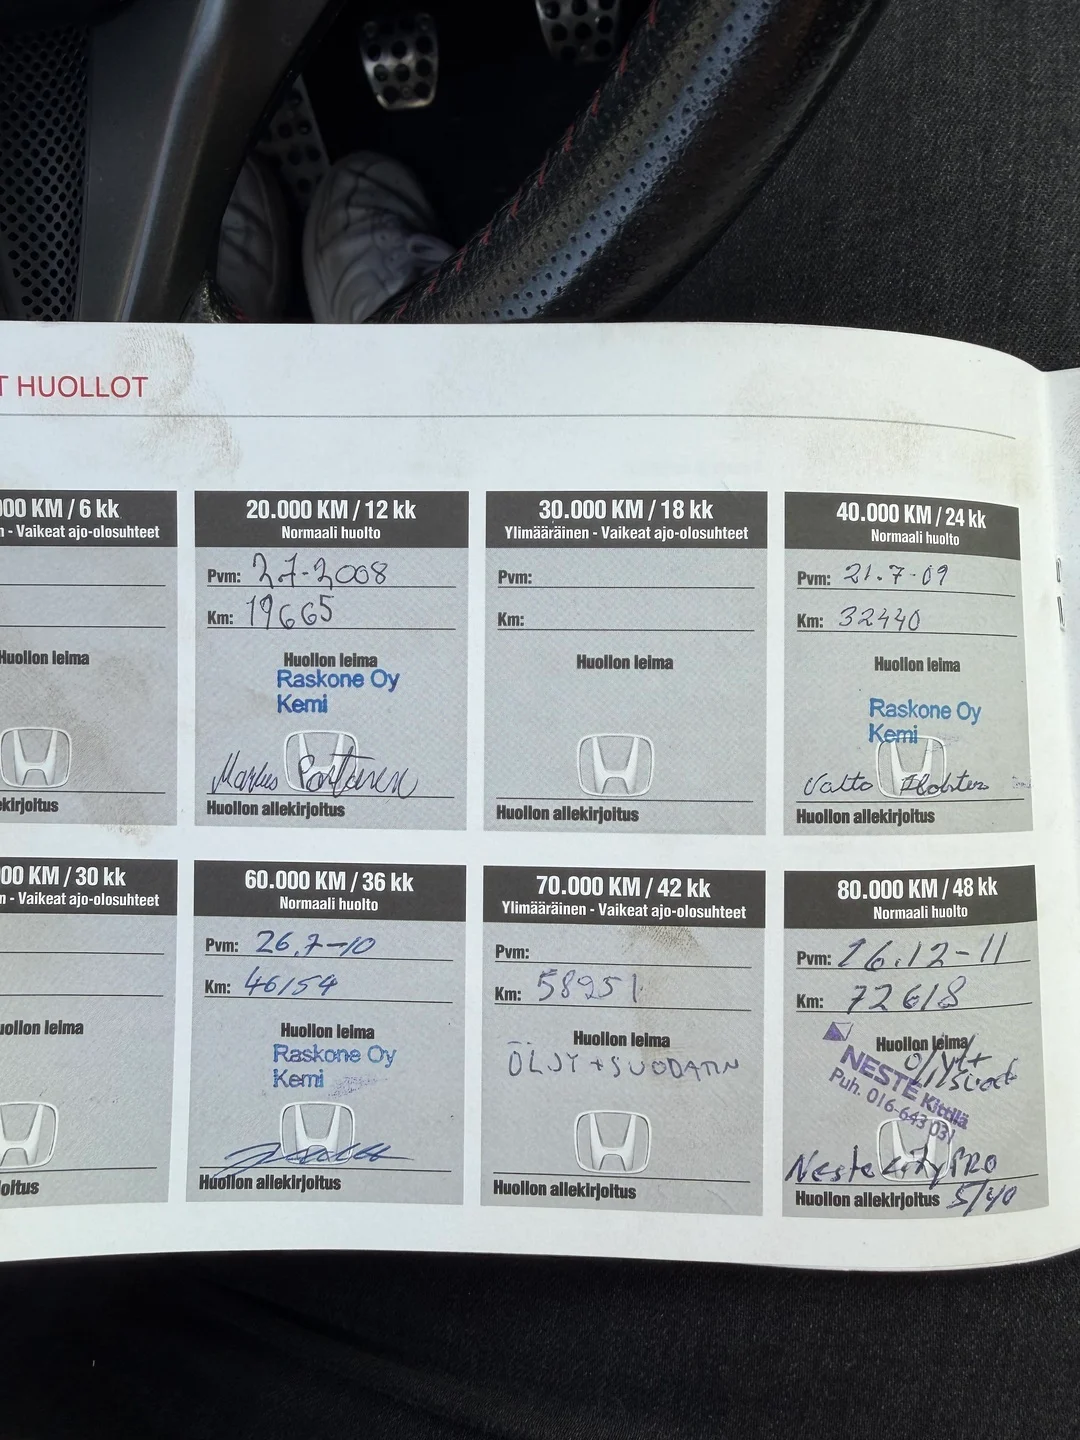 T HUOLLOT
000 KM / 6 kk
n - Vaikeat ajo-olosuhteet
Huollon leima
ekirjoitus
20.000 KM / 12 kk
Normaali huolto
Pvm: 2.7-2008
Km: 19665
Huollon leima
Raskone Oy
Kemi
Markus
Huollon allekirjoitus
30.000 KM / 18 kk
Ylimääräinen - Vaikeat ajo-olosuhteet
Pvm:
Km:
Huollon leima
Huollon allekirjoitus
40.000 KM / 24 kk
Normaali huolto
Pvm: 21.7-09
Km: 32440
Huollon leima
Raskone Oy
Kemi
Valto
Huollon allekirjoitus
00 KM / 30 kk
n - Vaikeat ajo-olosuhteet
uollon leima
joitus
60.000 KM / 36 kk
Normaali huolto
Pvm: 26.7-10
Km: 46154
Huollon leima
Raskone Oy
Kemi
Huollon allekirjoitus
70.000 KM / 42 kk
Ylimääräinen - Vaikeat ajo-olosuhteet
Pvm:
Km: 58951
Huollon leima
ÖLJY + SUODATIN
Huollon allekirjoitus
80.000 KM / 48 kk
Normaali huolto
Pvm: 16.12-11
Km: 72618
Huollon leima
NESTE Kittilä
Puh. 016-643 031
Neste City PRO
Huollon allekirjoitus 5/40